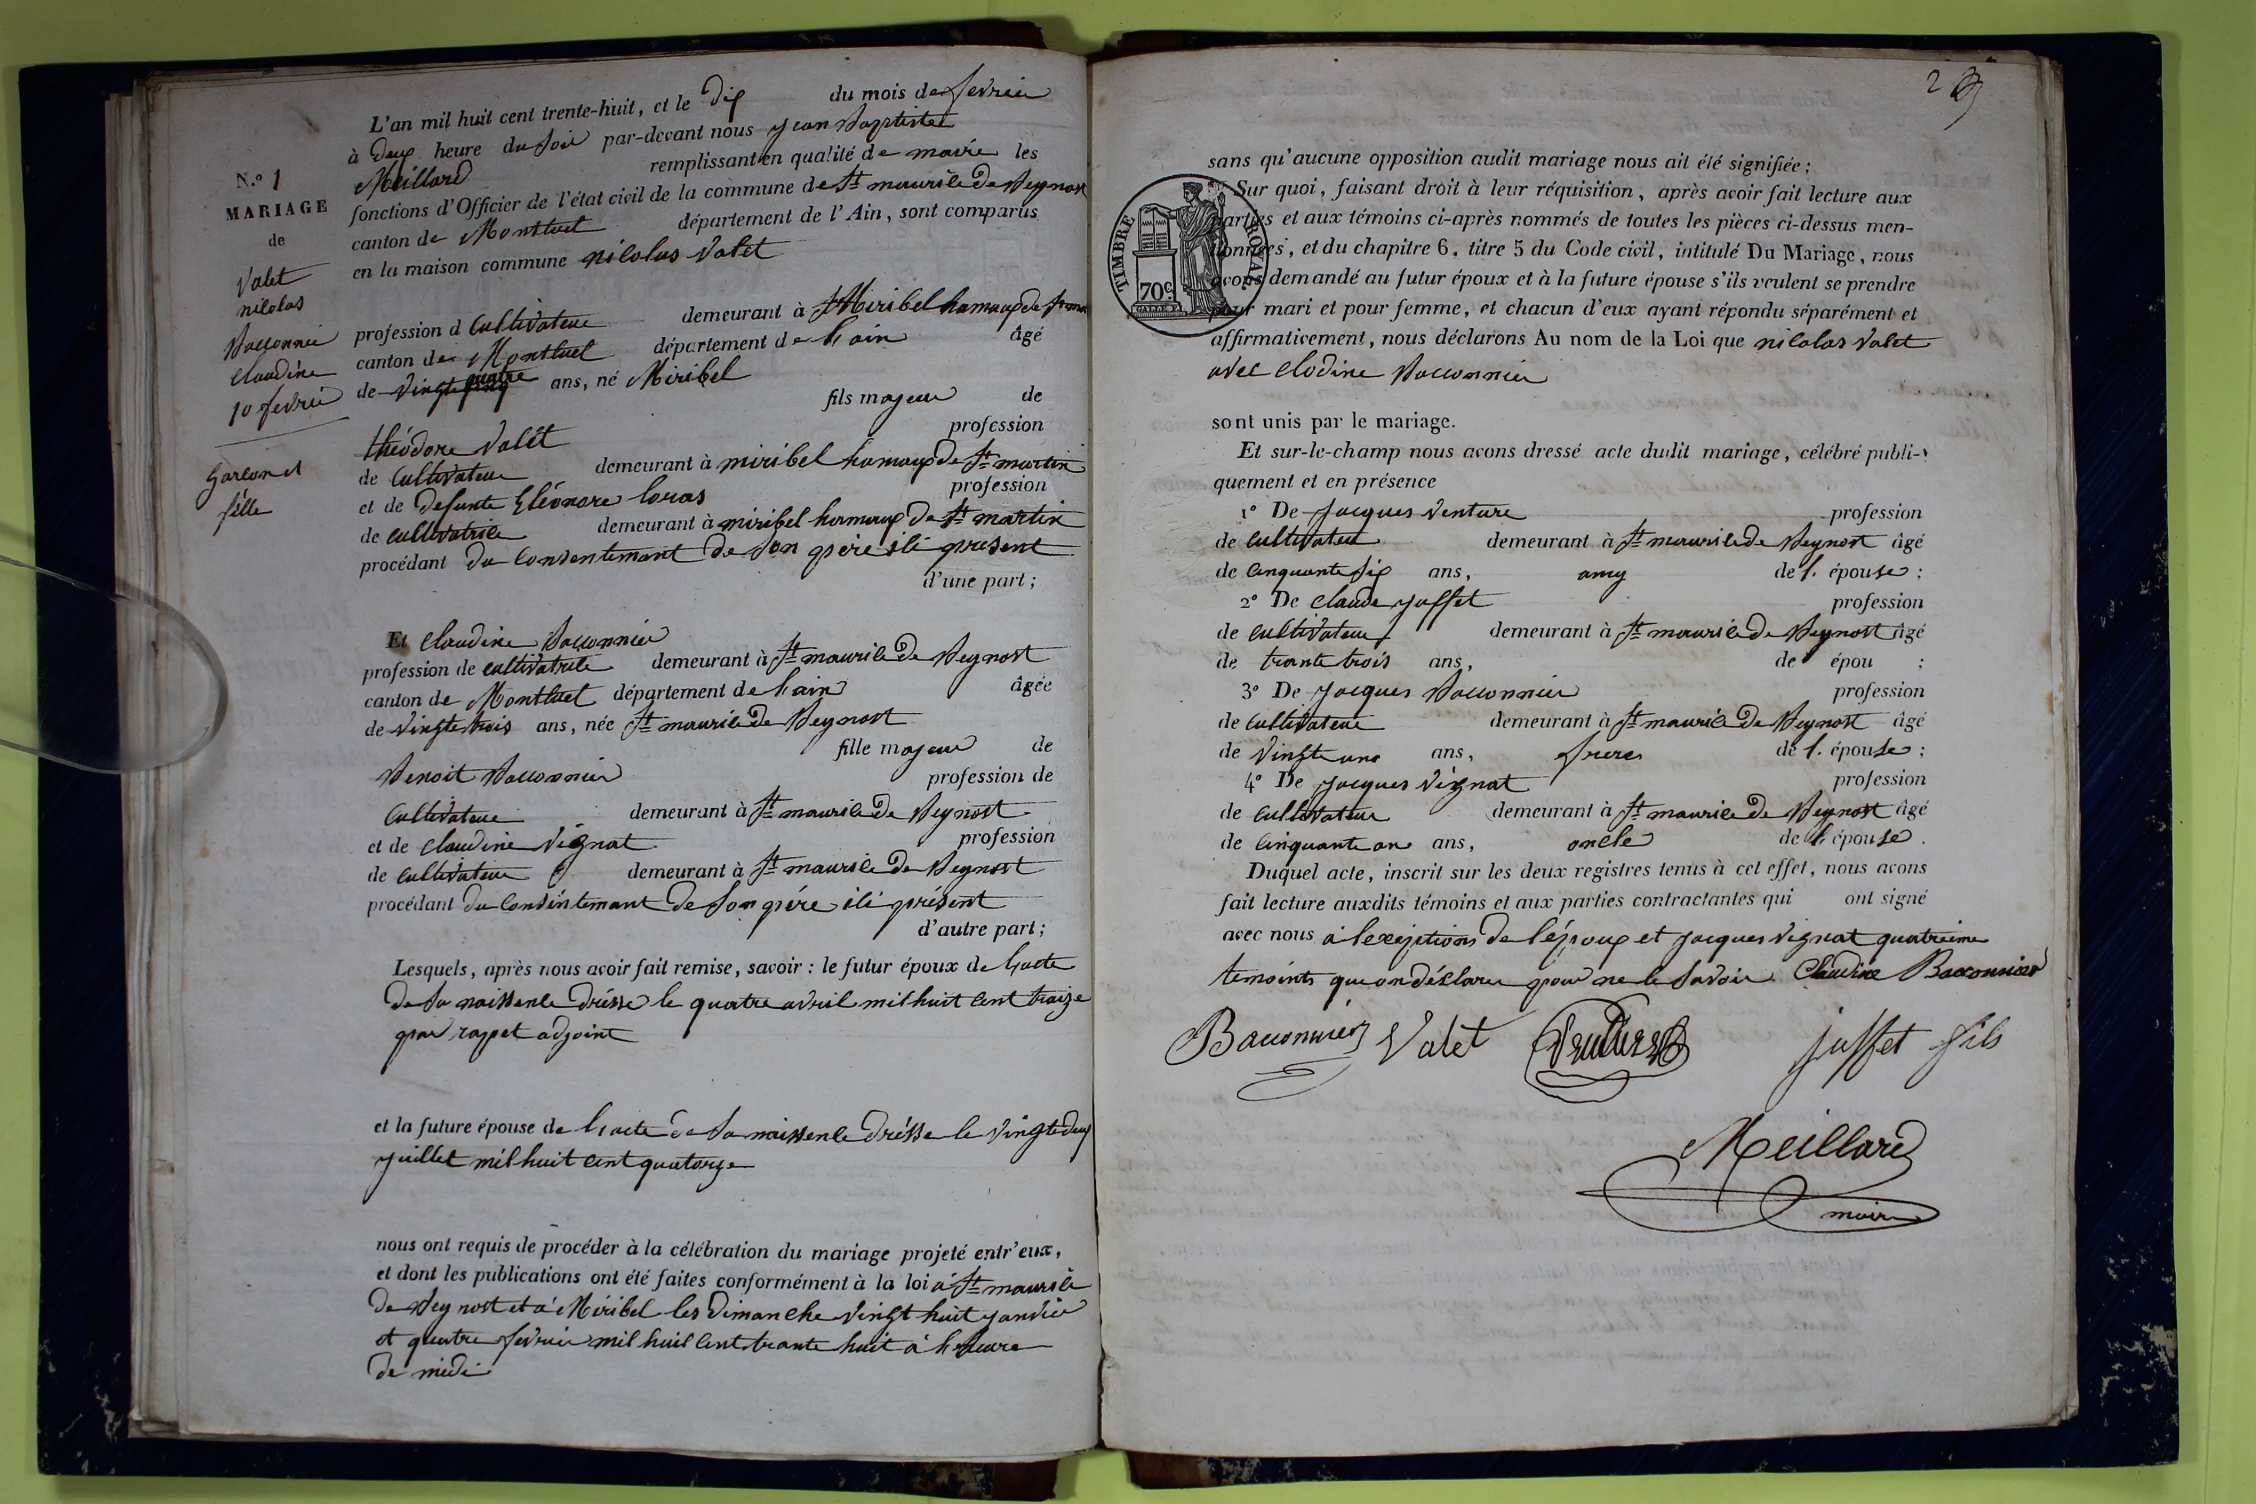 L'an mil huit cent trente-huit, et le dix du mois de fevrier
à deux heure du soir par-devant nous jean Baptiste
Meillard remplissant en qualité de maire les
fonctions d'Officier de l'état civil de la commune de St maurice de Beynost
canton de Montluel département de l'Ain, sont comparus
en la maison commune nicolas Valet
profession d cultivateur demeurant à Miribel hamaux de
canton de Montluel département de l'ain âgé
de vingt quatre ans, né Miribel
fils majeur de
théodore Valét profession
de cultivateur demeurant à miribel hamaux de St martin
et de defunte Eléonore loras profession
de cultivatrice demeurant à miribel hamaux de St martin
procédant du consentemant de son père ici present
d'une part;
Et claudine Bacconnier
profession de cultivatrice demeurant à St maurice de Beynost
canton de Montluel département de l'ain âgée
de vingt trois ans, née St maurice de Beynost
fille majeur de
Benoit Bacconnier profession de
cultivateur demeurant à St maurice de Beynost
et de claudine Vignat profession
de cultivateur demeurant à St maurice de Beynost
procédant du consintemant de son père ici présent
d'autre part;
Lesquels, après nous avoir fait remise, savoir : le futur époux de l'acte
de sa naissence drésse le quatre avril mil huit cent traize
par rappet adjoint
et la future épouse de l'acte de sa naissence drésse le vingt deux
juillet mil huit cent quatorze
nous ont requis de procéder à la célébration du mariage projeté entr'eux,
et dont les publications ont été faites conformément à la loi à St maurice
de Beynost et a Miribel les dimanche vingt huit janvier
et quatre fevrier mil huit cent trante huit à l'heure
de midi
N.° 1
MARIAGE
de
Valet
nicolas
Bacconnier
claudine
10 fevrier
Garcon et
fille
2
sans qu'aucune opposition audit mariage nous ait été signifiée;
Sur quoi, faisant droit à leur réquisition, après avoir fait lecture aux
parties et aux témoins ci-après nommés de toutes les pièces ci-dessus men-
tionnées, et du chapitre 6, titre 5 du Code civil, intitulé Du Mariage, nous
avons demandé au futur époux et à la future épouse s'ils veulent se prendre
pour mari et pour femme, et chacun d'eux ayant répondu séparément et
affirmativement, nous déclarons Au nom de la Loi que nicolas Valet
avec clodine Bacconnier
sont unis par le mariage.
Et sur-le-champ nous avons dressé acte dudit mariage, célébré publi-
quement et en présence
1° De jacques Venture profession
de cultivateur demeurant à St maurice de Beynost âgé
de cinquante six ans, amy de l. épouse ;
2° De claude juffet profession
de cultivateur demeurant à St maurice de Beynost âgé
de trante trois ans, de épou ;
3° De jacques Bacconnier profession
de cultivateur demeurant à St maurice de Beynost âgé
de vingt une ans, freres de l. épouse ;
4° De jacques Vignat profession
de cultivateur demeurant à St maurice de Beynost âgé
de cinquante an ans, oncle de l'épouse .
Duquel acte, inscrit sur les deux registres tenus à cet effet, nous avons
fait lecture auxdits témoins et aux parties contractantes qui ont signé
avec nous à l'exeptions de l'époux et jacques Vignat quatrieme
temoints que on déclarer pour ne le savoir Claudine Baconnier
Baconnier Valet juffet fils
Meillard
maire
TIMBRE ROYAL
70c.